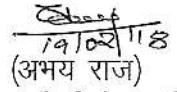 19/02/18
(अभय राज)